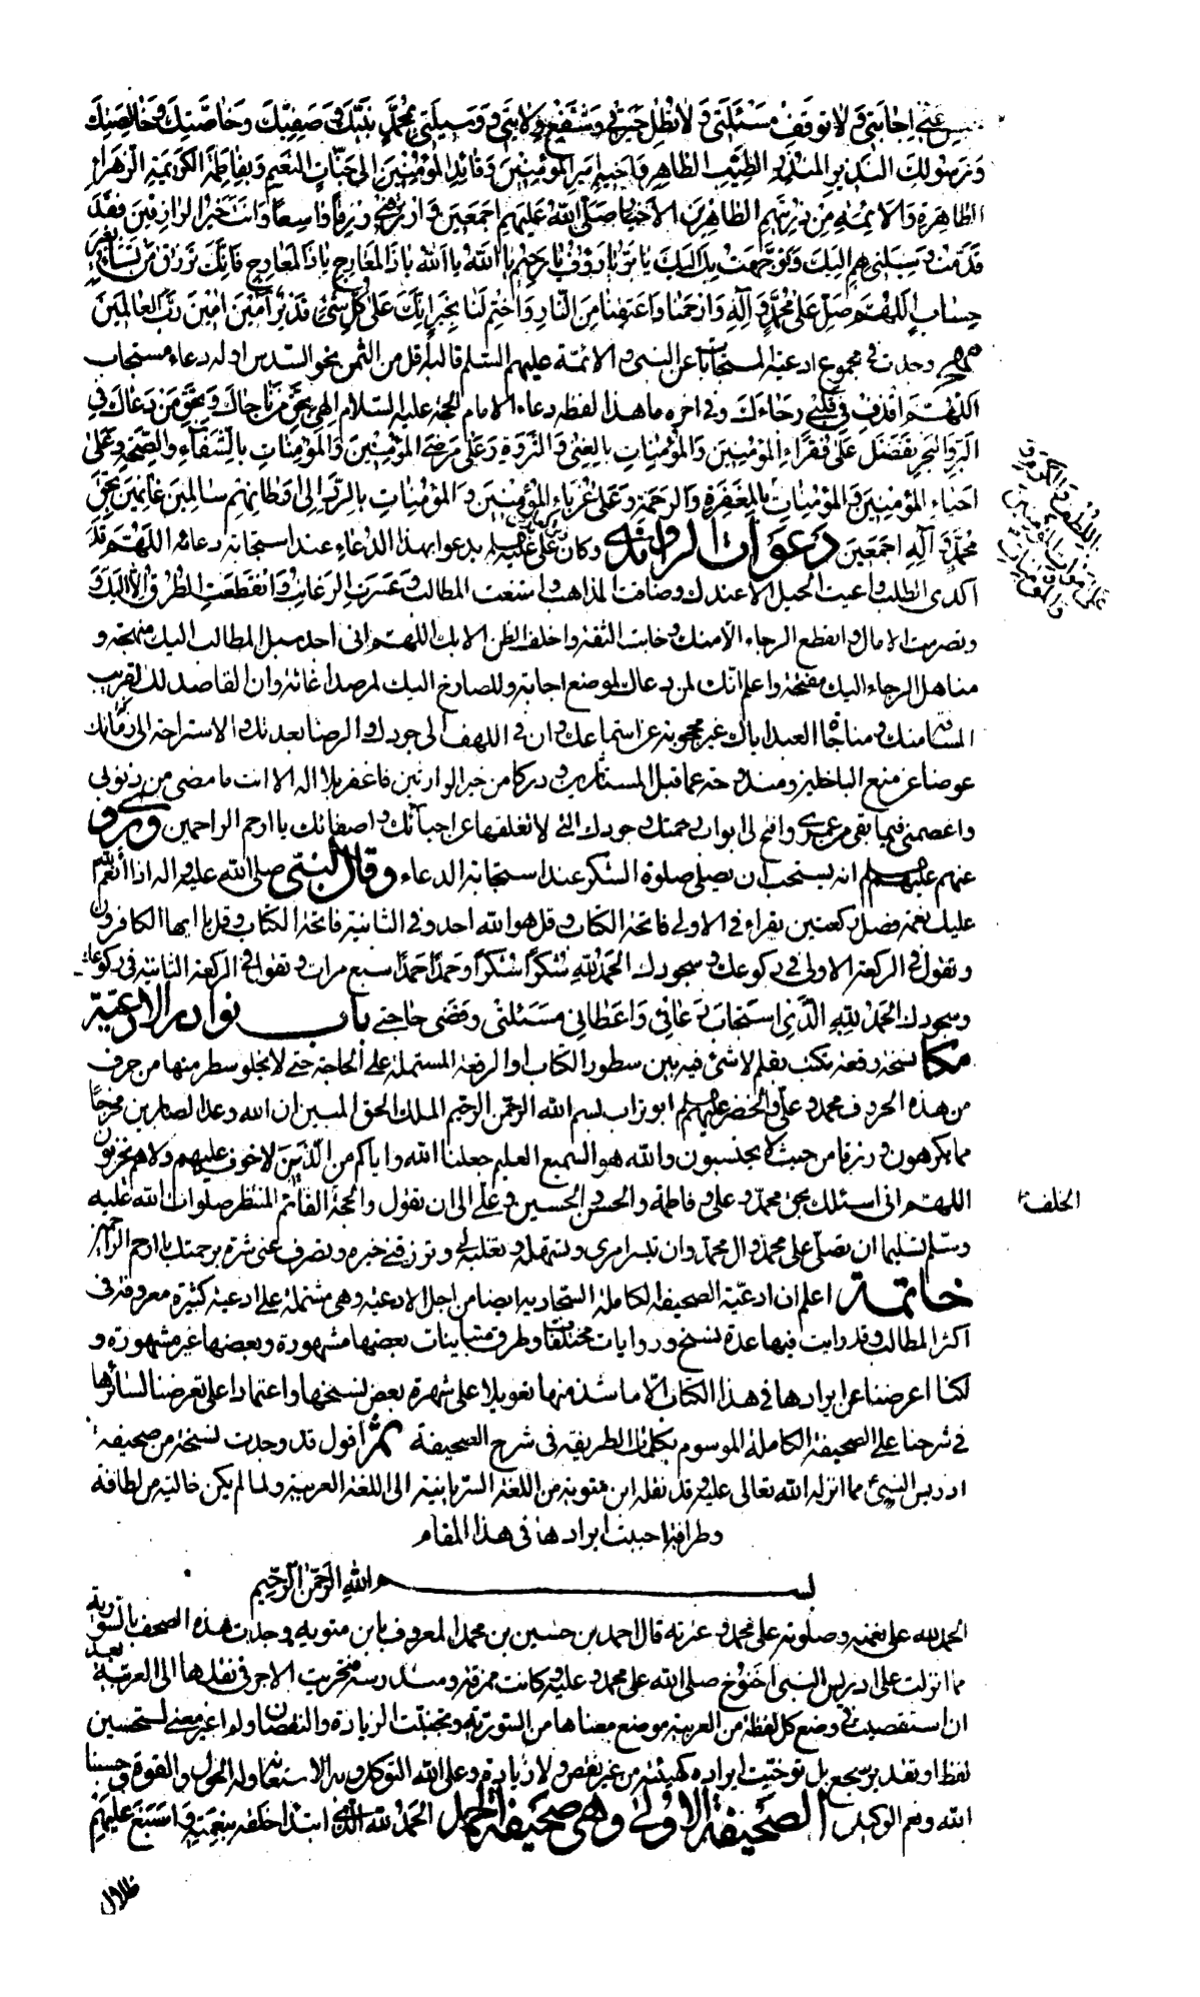 عني اجابتي و لا توقف مسئلتي و لا تطل حيرتي و شفع ولايتي و وسيلتي بمحمد نبيك و صفيك و خاصتك و خالصتك
و رسولك النذير المنذر الطيب الطاهر و اخيه امير المؤمنين و قائد المؤمنين الى جنات النعيم و بفاطمة الكريمة الزهراء
الطاهرة و الائمة من ذريتهم الطاهرين الاخيار صلى الله عليهم اجمعين و ارزقني رزقا واسعا و انت خير الرازقين فقد
قدمت وسيلتي بهم اليك و توجهت بك اليك يا بر يا رؤف يا رحيم يا الله يا الله يا ذا المعارج يا ذا المعارج فانك ترزق من تشاء بغير
حساب اللهم صل على محمد و آله و ارحمنا و اعتقنا من النار و اختم لنا بخير انك على كل شئ قدير آمين آمين رب العالمين
مهج وجدت في مجموع ادعية المستجابات عن النبي و الائمة عليهم السلم قالبه اقل من الثمن نحو السدس اوله دعاء مستجاب
اللهم اقذف في قلبي رجاءك و في اخره ما هذا لفظه دعاء الامام الحجة عليه السلام الهي بحق من ناجاك و بحق من دعاك في
البر و البحر تفضل على فقراء المؤمنين و المؤمنات بالغنى و الثروة و على مرضى المؤمنين و المؤمنات بالشفاء و الصحة و على
احياء المؤمنين و المؤمنات باللطف و الكرم و على اموات المؤمنين و المؤمنات بالمغفرة و الرحمة و على غرباء المؤمنين و المؤمنات بالرد الى اوطانهم سالمين غانمين بحق
محمد و آله اجمعين دعوات الراوندي و كان علي عليه السلم يدعوا بهذا الدعاء عند استجابة دعائه اللهم قد
اكدى الطلب و اعيت الحيل الا عندك و ضاقت المذاهب و امتنعت المطالب و عسرت الرغائب و انقطعت الطرق الا اليك
و تصرمت الامال و انقطع الرجاء الا منك و خابت الثقة و اخلف الظن الا بك اللهم اني اجد سبل المطالب اليك منهجة و
مناهل الرجاء اليك مفتحة و اعلم انك لمن دعاك لموضع اجابة و للصارخ اليك لمرصد اغاثة و ان القاصد لك لقريب
المسافة منك و مناجاة العبد اياك غير محجوبة عن استماعك و ان في اللهف الى جودك و الرضا بعدتك و الاستراحة الى ضمانك
عوضا عن منع الباخلين و مندوحة عما قبل المستأثرين و دركا من خير الوارثين فاغفر بلا اله الا انت ما مضى من ذنوبي
و اعصمني فيما بقي من عمري و افتح لي ابواب رحمتك و جودك التي لا تغلقها عن احبائك و اصفيائك يا ارحم الراحمين و روى
عنهم عليهم السلم انه يستحب ان يصلي صلوة الشكر عند استجابة الدعاء و قال النبي صلى الله عليه و اله اذا أنعم الله
عليك نعمة فصل ركعتين يقراء في الاولى فاتحة الكتاب و قل هو الله احد و في الثانية فاتحة الكتاب و قل يا ايها الكافرون
و تقول في الركعة الاولى في ركوعك و سجودك الحمد لله شكرا شكرا و حمدا حمدا سبع مرات و تقول في الركعة الثانية في ركوعك
و سجودك الحمد لله الذي استجاب دعائي و اعطاني مسئلتي و قضى حاجتي باب نوادر الادعية
مكا نسخة رقعة تكتب بقلم لا شئ فيه بين سطور الكتاب او الرقعة المشتملة على الحاجة حتى لا يخلو سطر منها من حرف
من هذه الحروف محمد و علي و الخضر عليهم السلم ابو تراب بسم الله الرحمن الرحيم الملك الحق المبين ان الله وعد الصابرين مخرجا
مما يكرهون و رزقا من حيث لا يحتسبون و الله هو السميع العليم جعلنا الله و اياكم من الذين لا خوف عليهم و لا هم يحزنون
اللهم اني اسئلك بحق محمد و علي و فاطمة و الحسن و الحسين و علي الى ان تقول و الحجة القائم المنتظر صلوات الله عليه
و سلم تسليما ان تصلي على محمد و ال محمد و ان تيسر امري و تسهله و تغلبه لي و ترزقني خيره و تصرف عني شره برحمتك يا ارحم الراحمين
خاتمة اعلم ان ادعية الصحيفة الكاملة السجادية ايضا من اجل الادعية و هي مشتملة على ادعية كثيرة معروفة في
اكثر المطالب و قد رايت فيها عدة نسخ و روايات مختلفات و طرق متباينات بعضها مشهورة و بعضها غير مشهورة و
لكنا اعرضنا عن ايرادها في هذا الكتاب الا ما شذ منها تعويلا على شهرة بعض نسخها و اعتمادا على تعرضنا لسائرها
في شرحنا على الصحيفة الكاملة الموسوم بكلمات الطريفة في شرح الصحيفة ثم اقول قد وجدت نسخة من صحيفة
ادريس النبي مما انزله الله تعالى عليه و قد نقله ابن متويه من اللغة السريانية الى اللغة العربية و لما لم يكن خالية من لطافة
و طرافة احببت ايرادها في هذا المقام
بسم الله الرحمن الرحيم
الحمد لله على نعمه و صلوته على محمد و عترته قال احمد بن حسين بن محمد المعروف بابن متويه وجدت هذه الصحف بالسورية
مما انزلت على ادريس النبي اخنوخ صلى الله على محمد و عليه و كانت ممزقة و مندرسة فتحريت الاجر في نقلها الى العربية بعد
ان استقصيت في وضع كل لفظة من العربية موضع معناها من السورية و تجنبت الزيادة و النقصان و لم اغير معنى لتحسين
لفظ او تقدير سجع بل توخيت ايراده كهيئته من غير نقص و لا زيادة و على الله التوكل و به الاستعانة و له الحول و القوة و حسبنا
الله و نعم الوكيل الصحيفة الاولى و هي صحيفة الحمد الحمد لله الذي ابتدأ خلقه بنعمته و اسبغ عليهم
ظلال
الخلف